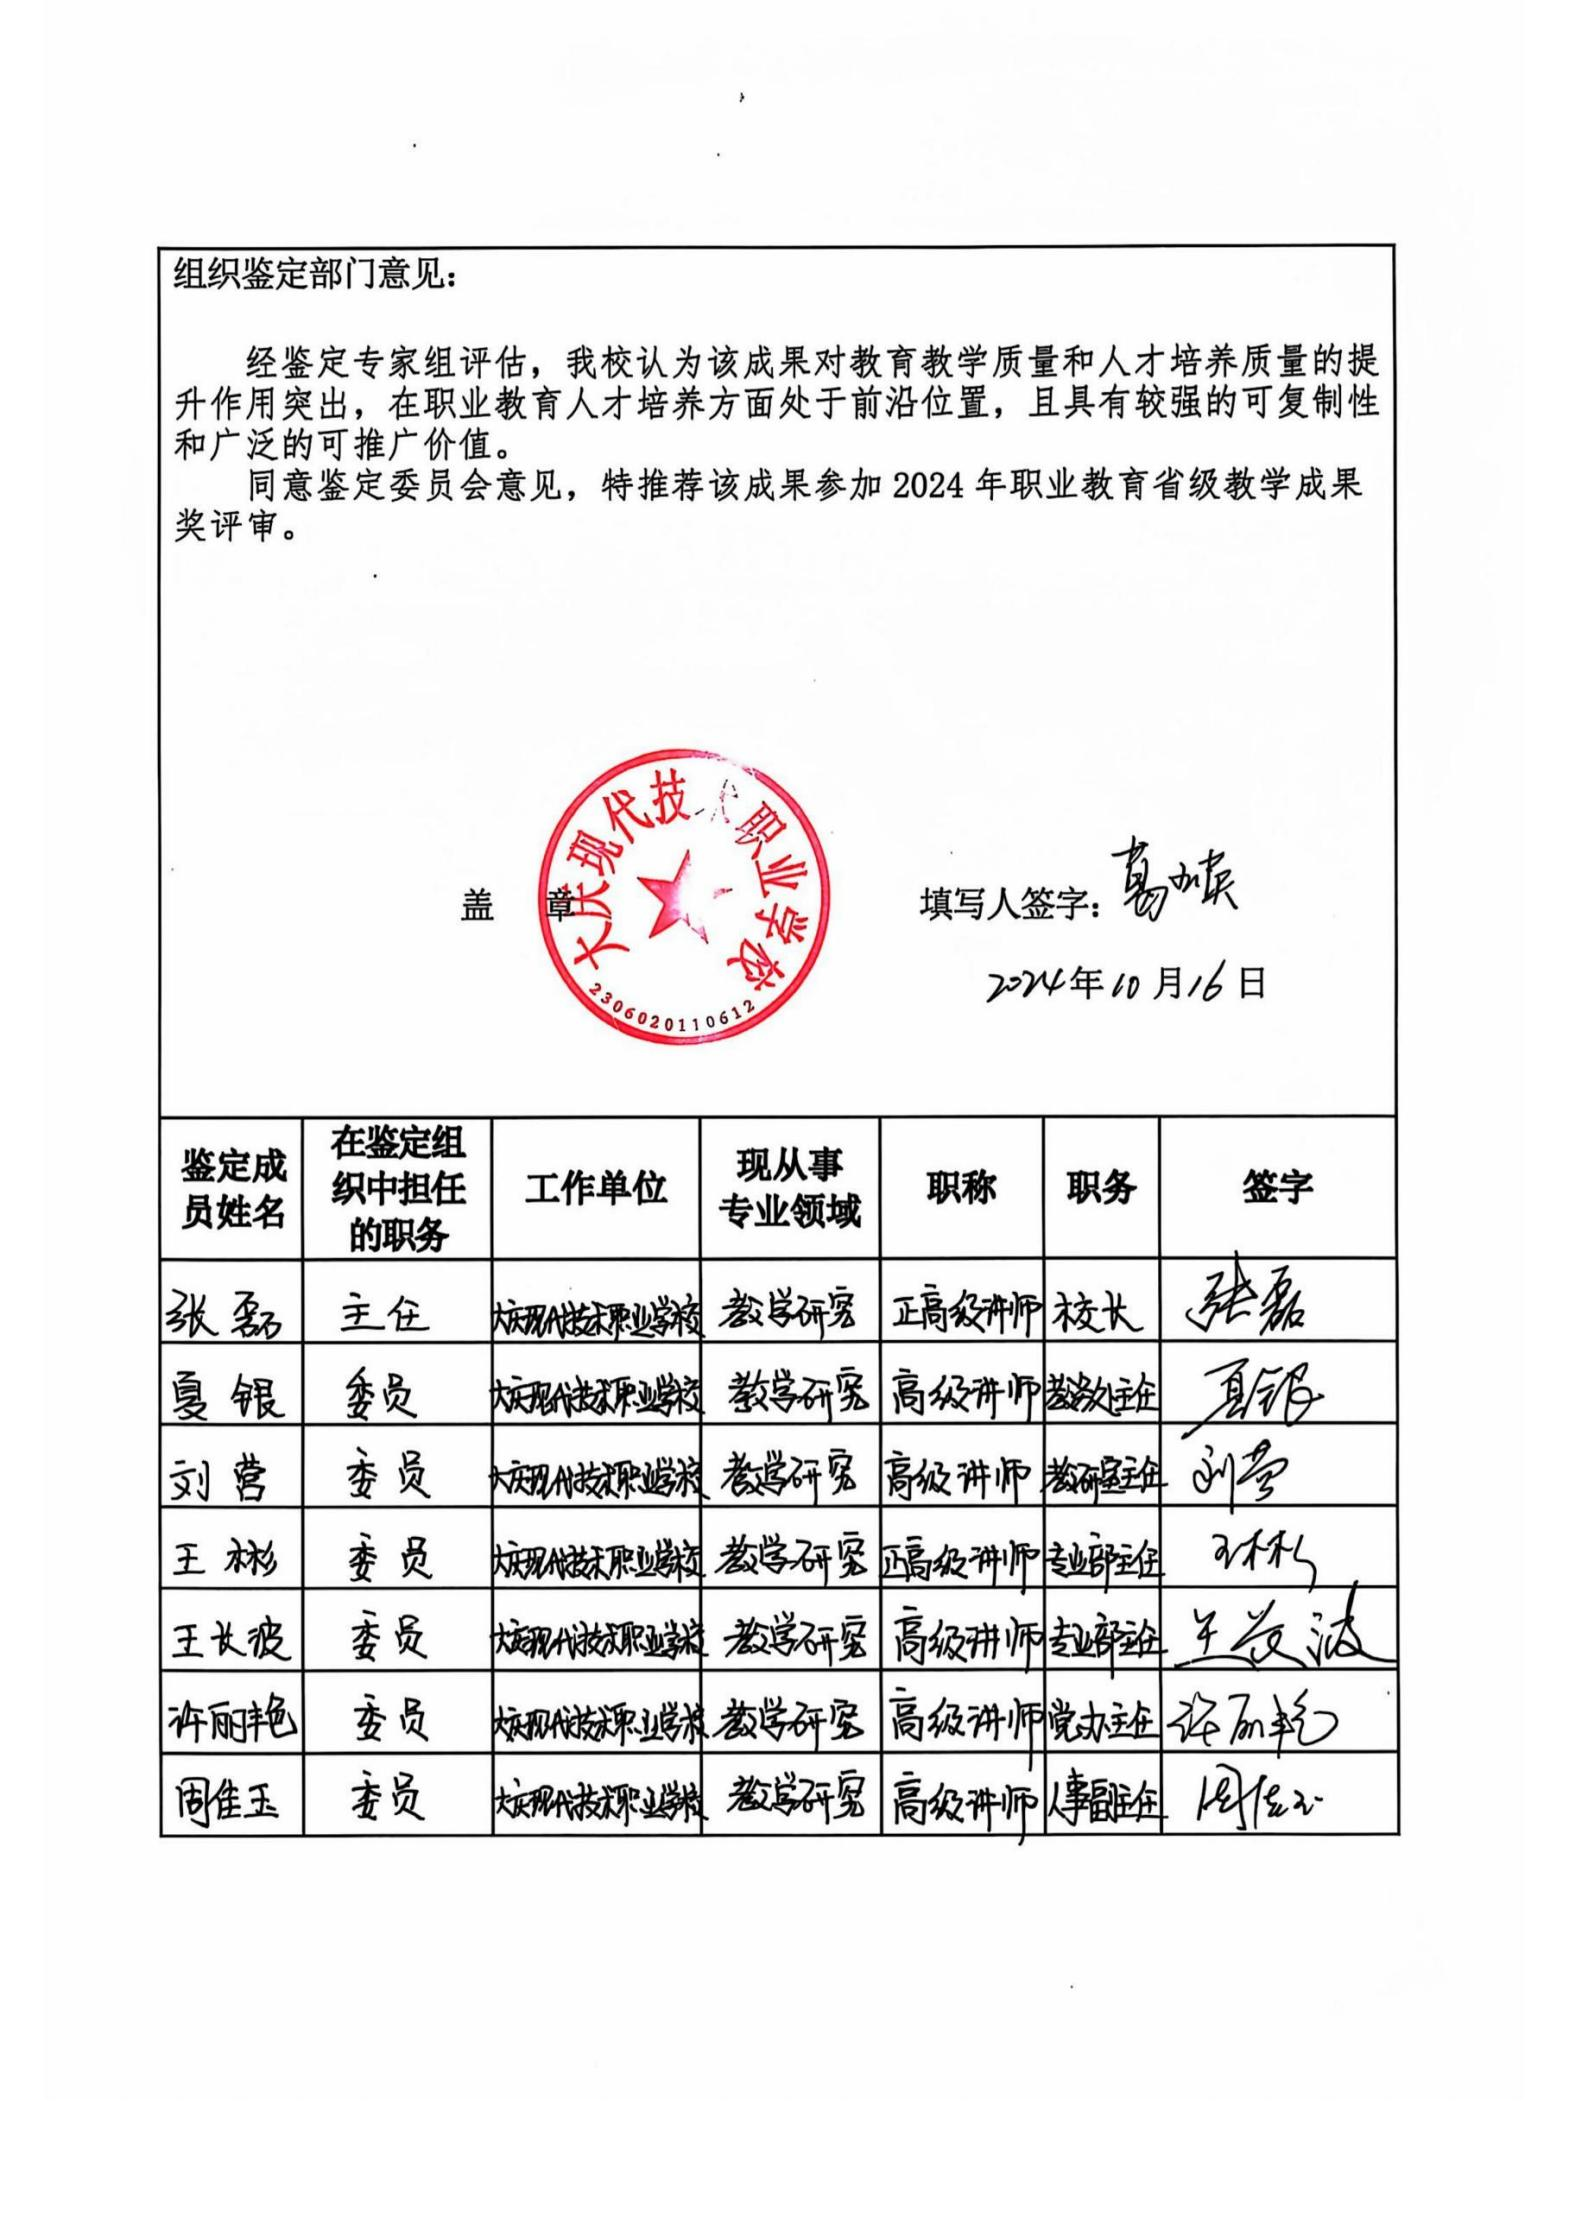 组织鉴定部门意见：
经鉴定专家组评估，我校认为该成果对教育教学质量和人才培养质量的提
升作用突出，在职业教育人才培养方面处于前沿位置，且具有较强的可复制性
和广泛的可推广价值。
同意鉴定委员会意见，特推荐该成果参加 2024 年职业教育省级教学成果
奖评审。
大庆现代技术职业学校
2306020110612
盖 章
填写人签字：
2024年10月16日
鉴定成员姓名 在鉴定组织中担任的职务 工作单位 现从事专业领域 职称 职务 签字
张磊 主任 大庆现代技术职业学校 教学研究 正高级讲师 校长 张磊
夏银 委员 大庆现代技术职业学校 教学研究 高级讲师 教务处主任 夏银
刘营 委员 大庆现代技术职业学校 教学研究 高级讲师 教研室主任 刘营
王彬 委员 大庆现代技术职业学校 教学研究 正高级讲师 专业部主任 王彬
王长波 委员 大庆现代技术职业学校 教学研究 高级讲师 专业部主任 王长波
许丽艳 委员 大庆现代技术职业学校 教学研究 高级讲师 党办主任 许丽艳
周佳玉 委员 大庆现代技术职业学校 教学研究 高级讲师 人事副主任 周佳玉